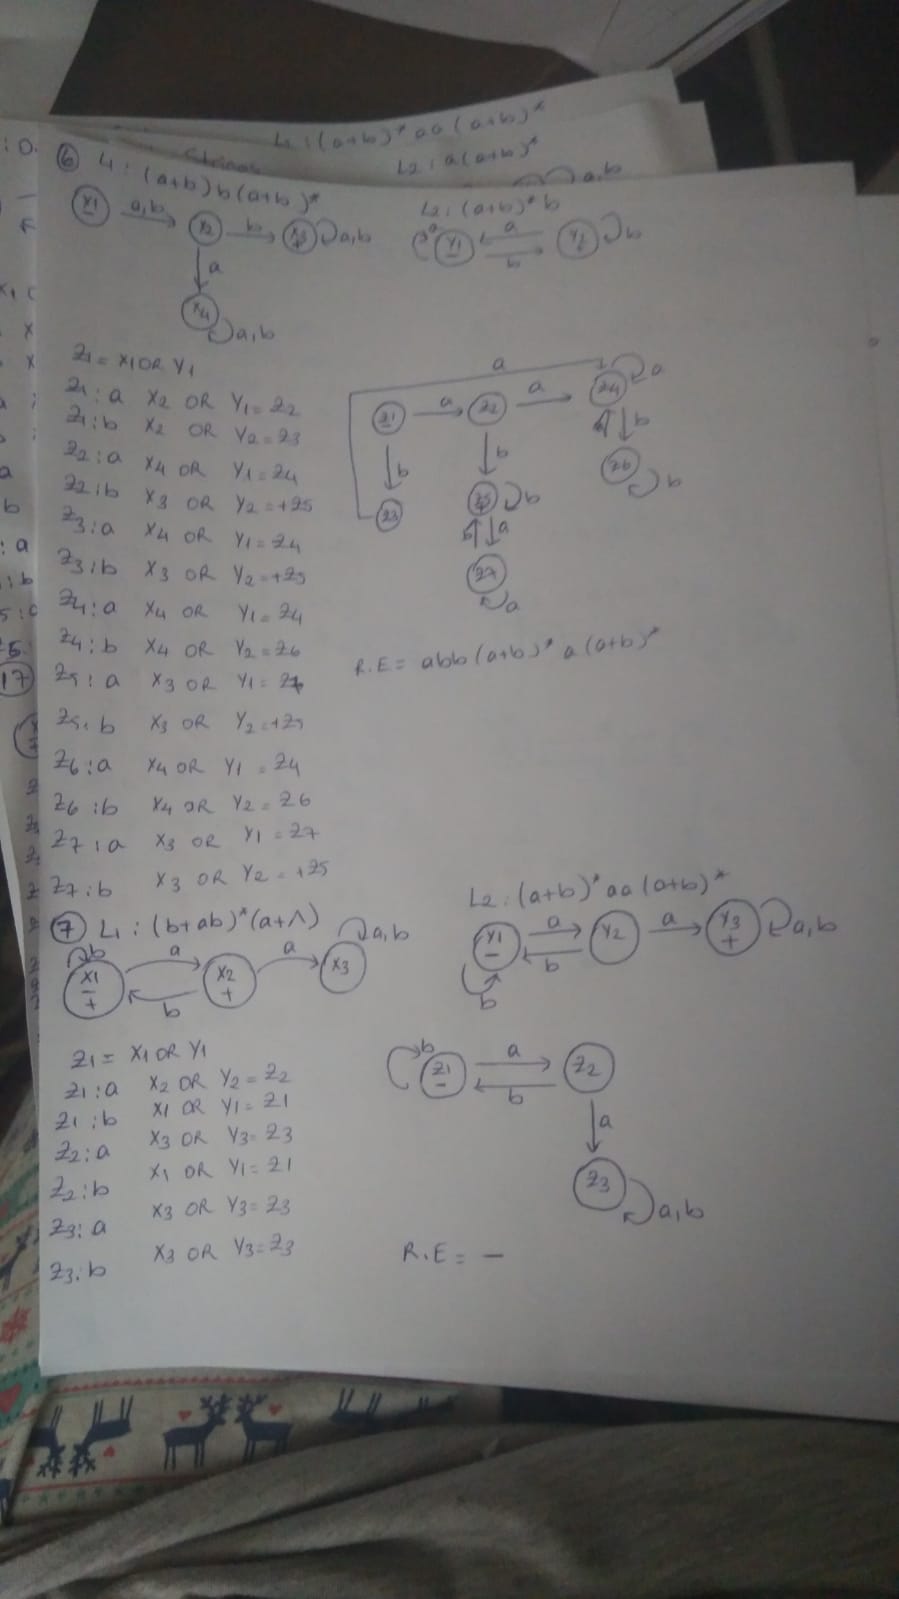 L1 : (a+b)* aa (a+b)*
L2 : a(a+b)*
a,b
⑥ L1 : (a+b)b(a+b)*
L2 : (a+b)* b
x1 a,b x2 b x3 + a,b
a y1 a b y2 + b
a
x4 a,b
Z1 = X1 OR Y1
Z1 : a X2 OR Y1 = Z2
Z1 : b X2 OR Y2 = Z3
Z2 : a X4 OR Y1 = Z4
Z2 : b X3 OR Y2 = +Z5
Z3 : a X4 OR Y1 = Z4
Z3 : b X3 OR Y2 = +Z5
Z4 : a X4 OR Y1 = Z4
Z4 : b X4 OR Y2 = Z6
Z5 : a X3 OR Y1 = Z7
Z5 : b X3 OR Y2 = +Z5
Z6 : a X4 OR Y1 = Z4
Z6 : b X4 OR Y2 = Z6
Z7 : a X3 OR Y1 = Z7
Z7 : b X3 OR Y2 = +Z5
a
Z1 a Z2 a Z4 a
b b b
Z3 Z5 + b Z6 b
b a
Z7
a
R.E = abb (a+b)* a (a+b)*
⑦ L1 : (b+ab)*(a+Λ)
L2 : (a+b)* aa (a+b)*
b X1 - + a b X2 + a X3 a,b
Y1 - a b Y2 a Y3 + a,b
b
Z1 = X1 OR Y1
Z1 : a X2 OR Y2 = Z2
Z1 : b X1 OR Y1 = Z1
Z2 : a X3 OR Y3 = Z3
Z2 : b X1 OR Y1 = Z1
Z3 : a X3 OR Y3 = Z3
Z3 : b X3 OR Y3 = Z3
b Z1 - a b Z2
a
Z3 a,b
R.E = —
17